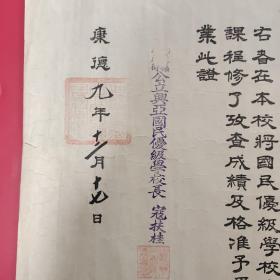 右者在本校將國民優級學校
課程修了攷查成績及格准予畢
業此證
公立興亞國民優級學校長 寇扶桂
康德九年十二月十七日